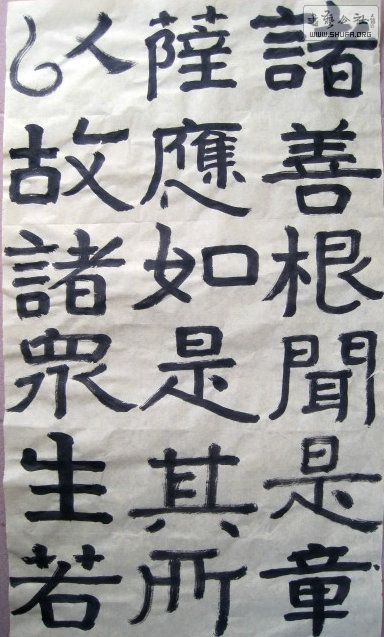 諸善根聞是章
薩應如是其所
以故諸眾生若
WWW.SHUFA.ORG